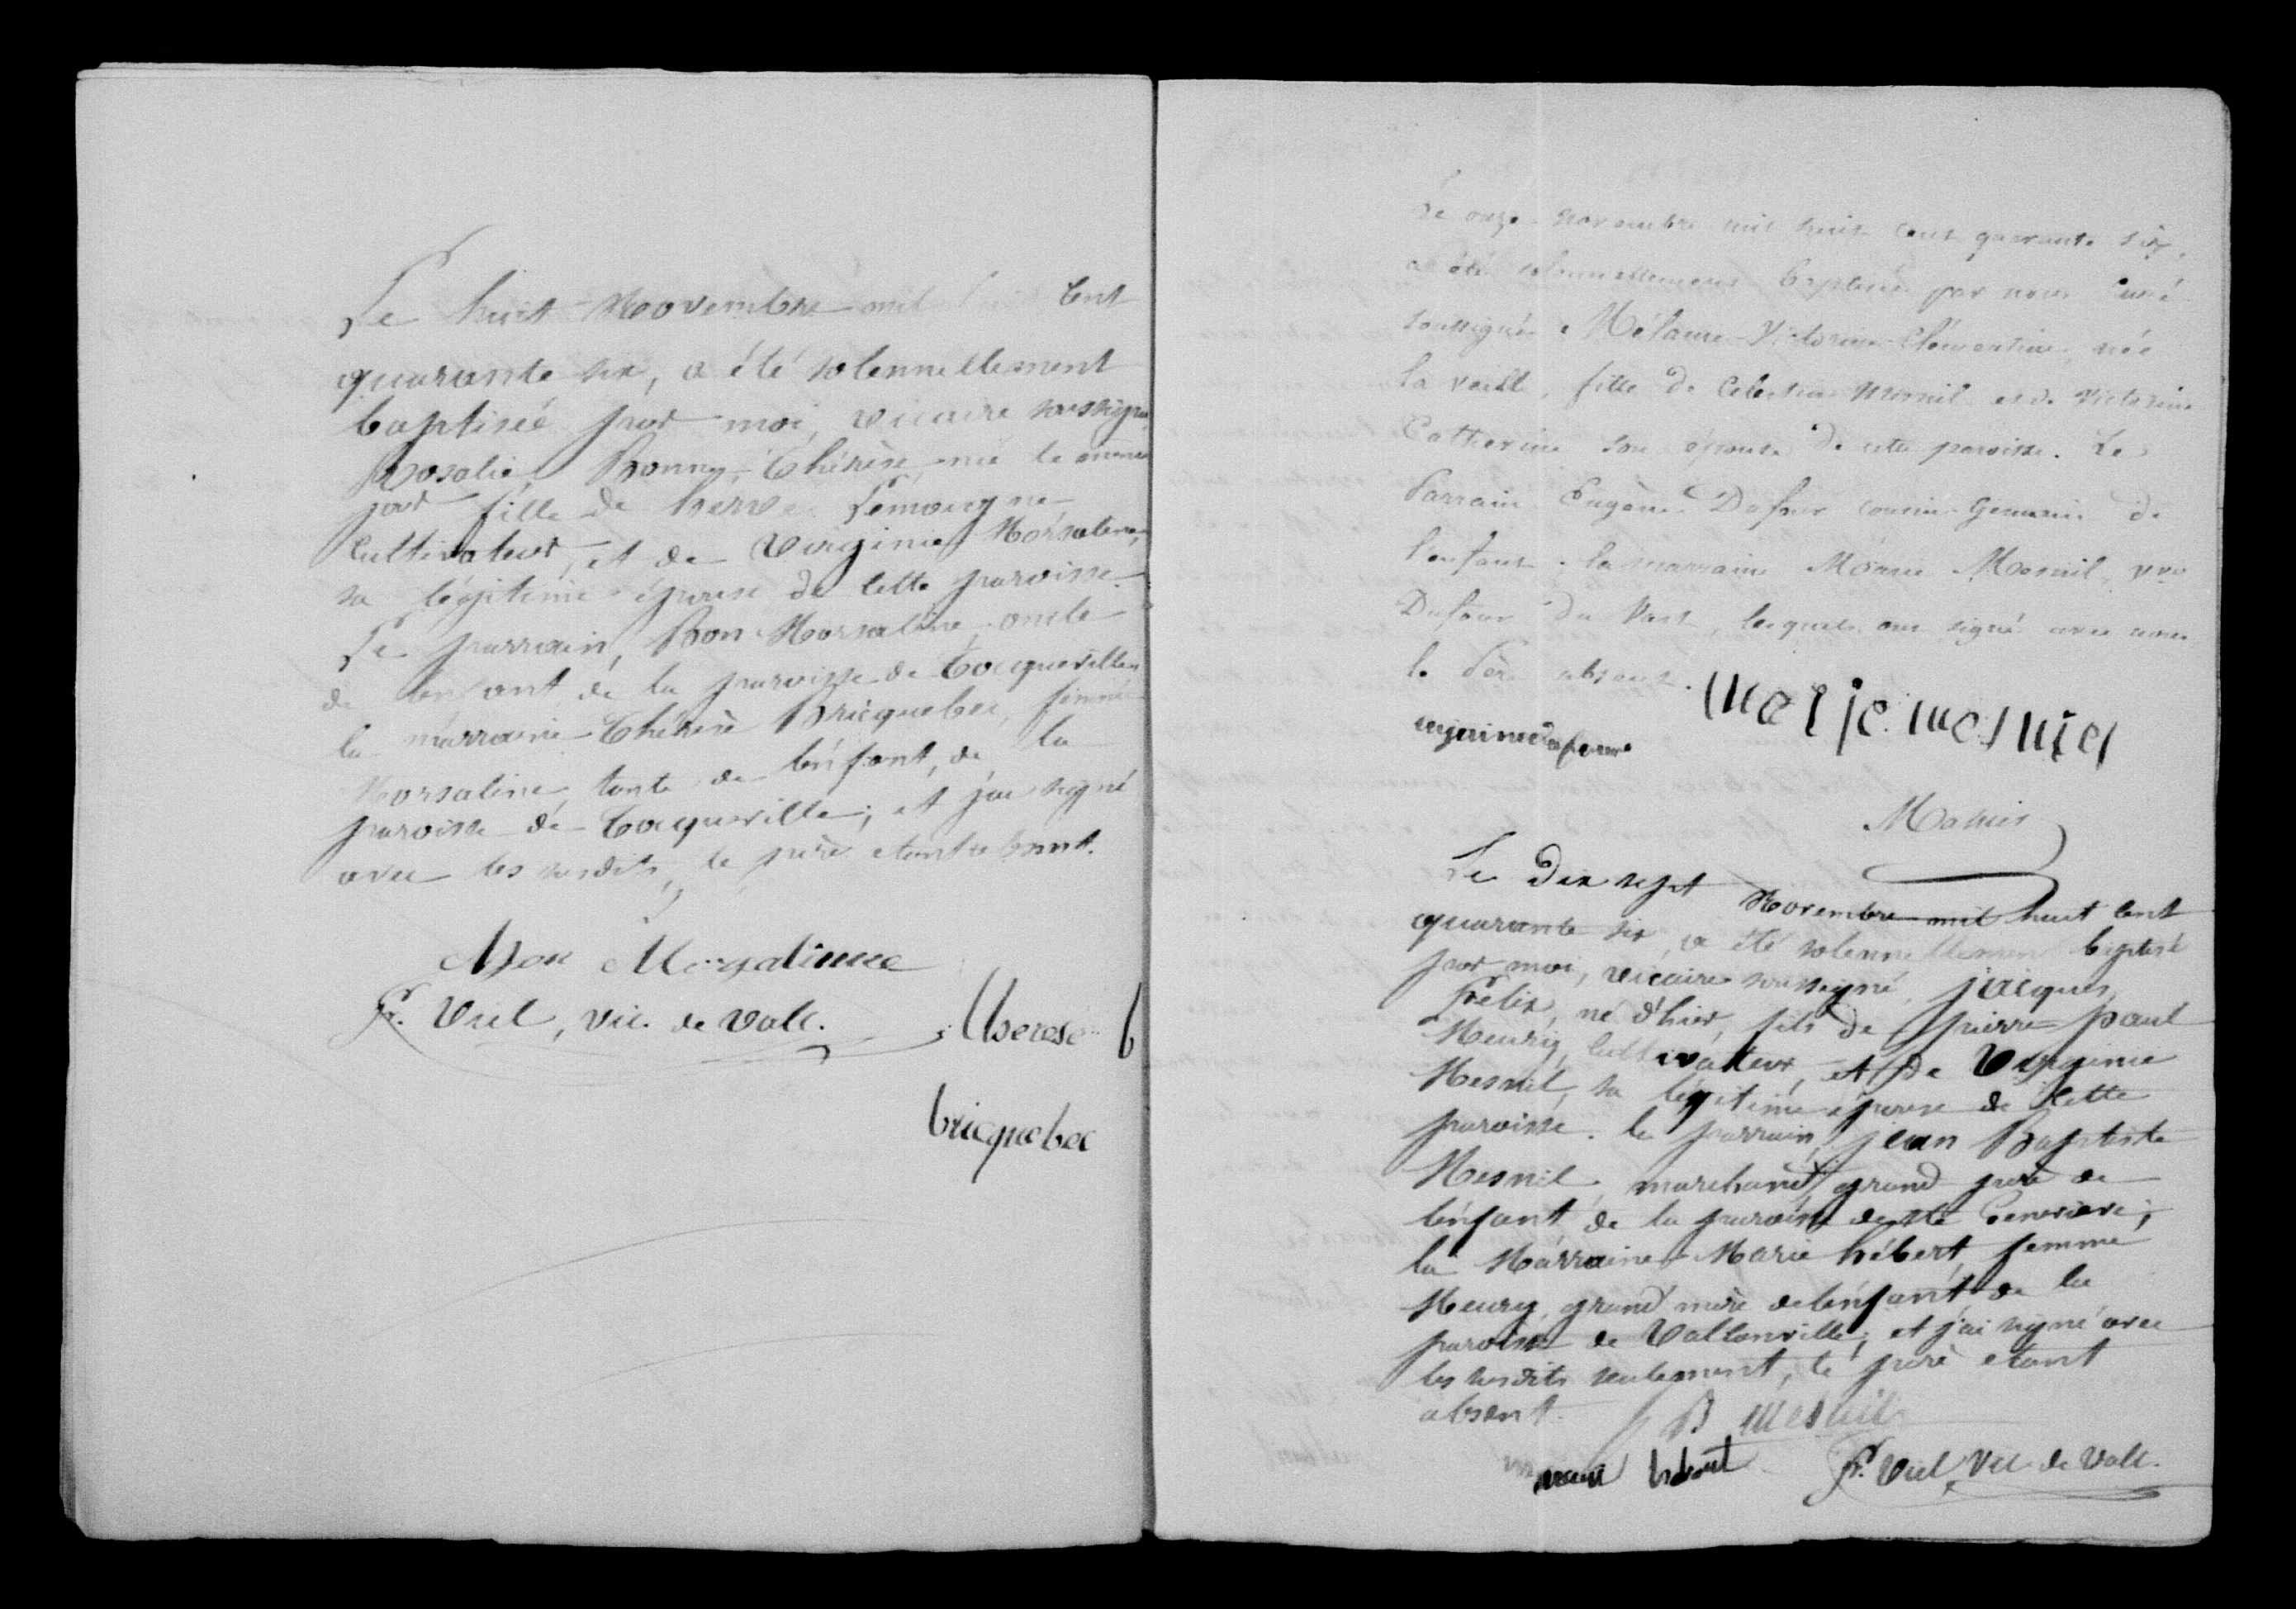 Le huit Novembre mil huit cent
quarante six, a été solennellement
baptisée par moi, vicaire soussigné
Rosalie, Bonny, Thérèse, née le même
jour fille de herve Lemoigne
Cultivateur, et de Virginie Morsaline,
sa légitime épouse de cette paroisse.
Le parrain, Bon Morsaline, oncle
de lenfant de la paroisse de Tocqueville,
la marraine Thérèse Bricquebec, femme
Morsaline, tante de lénfant, de la
paroisse de Tocqueville; et j'ai signé
avec les susdits, le père etant absent.
Bon Morsalinne
Fr. Viel, vic. de Vall.
therese b
bricquebec
Le onze novembre mil huit cent quarante six,
a été solennellement baptisée par nous Curé
soussigné Mélanie-Victorine-Clémentine, née
la veille, fille de Celestin Mesnil et de Victorine
Catherine son épouse de cette paroisse. Le
Parrain Eugène Dufour cousin-Germain de
l'enfant. la marraine Marie Mesnil, vve
Dufour du Vast, lesquels ont signé avec nous
le Père absent.
marje mesniel
Le dix sept Novembre mil huit cent
quarante six, a été solennellement baptisé
par moi, vicaire soussigné, jacques,
Félix, né d'hier, fils de pierre paul
Meury, cultivateur, et de Virginie
Mesnil, sa légitime épouse de cette
paroisse. le parrain, jean Baptiste
Mesnil, marchand, grand père de
lénfant de la paroisse de Ste Genevieve;
la Marraine Marie hébert, femme
Meury, grand mère de lénfant de la
paroisse de Vallonville; et j'ai signé avec
les susdits seulement, le père etant
absent.
J B mesnil
marie hebert
Fr. Viel, Vic. de Vall.